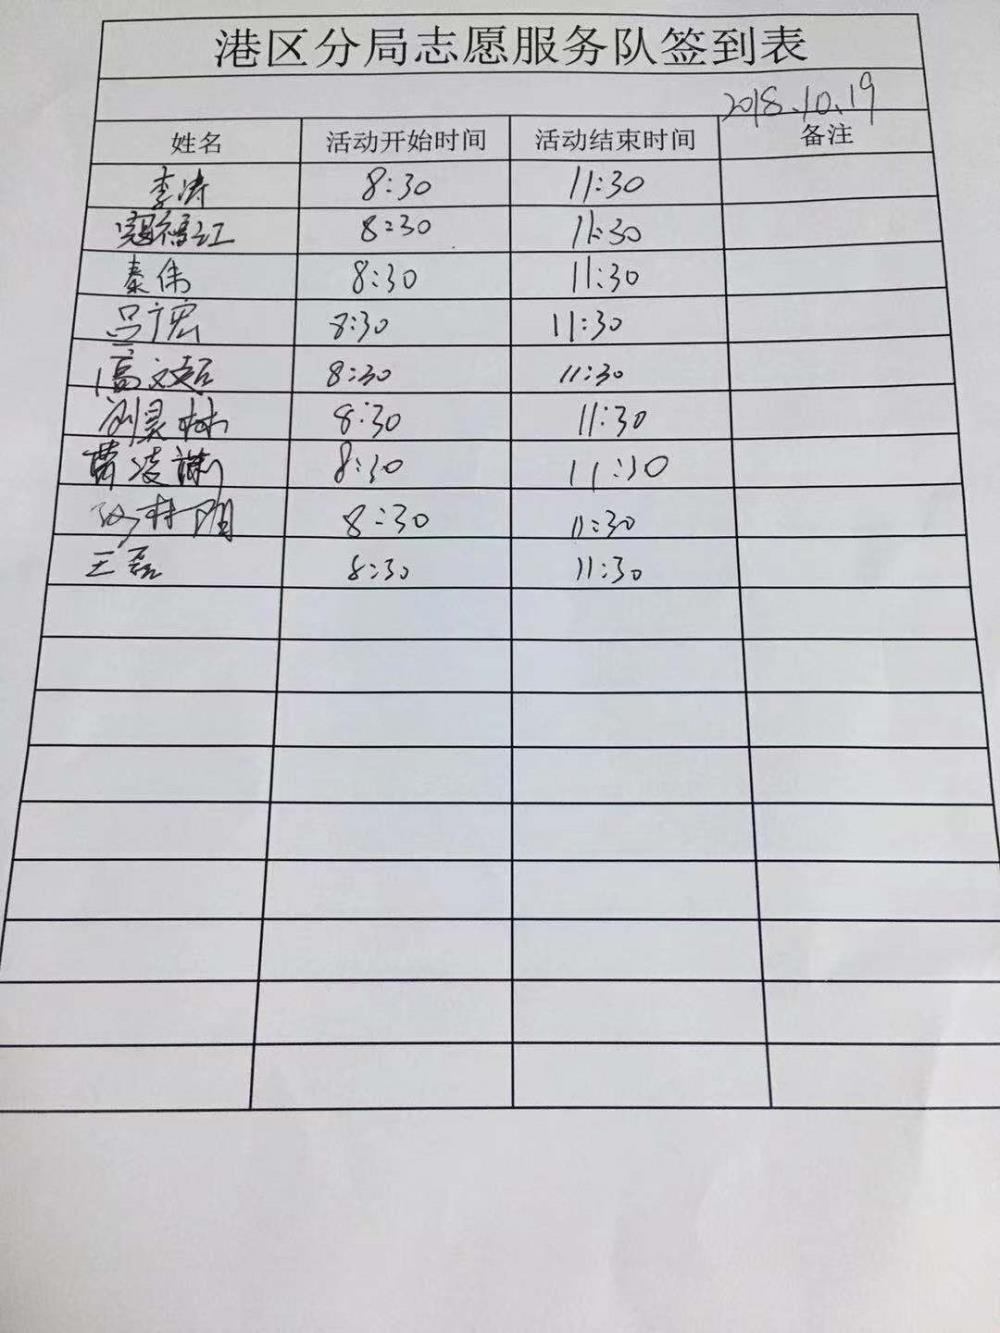 港区分局志愿服务队签到表
2018.10.19
姓名 活动开始时间 活动结束时间 备注
李涛 8:30 11:30
寇福江 8:30 11:30
秦伟 8:30 11:30
吕广宏 8:30 11:30
高文超 8:30 11:30
刘昊林 8:30 11:30
曹凌 8:30 11:30
8:30 11:30
王磊 8:30 11:30